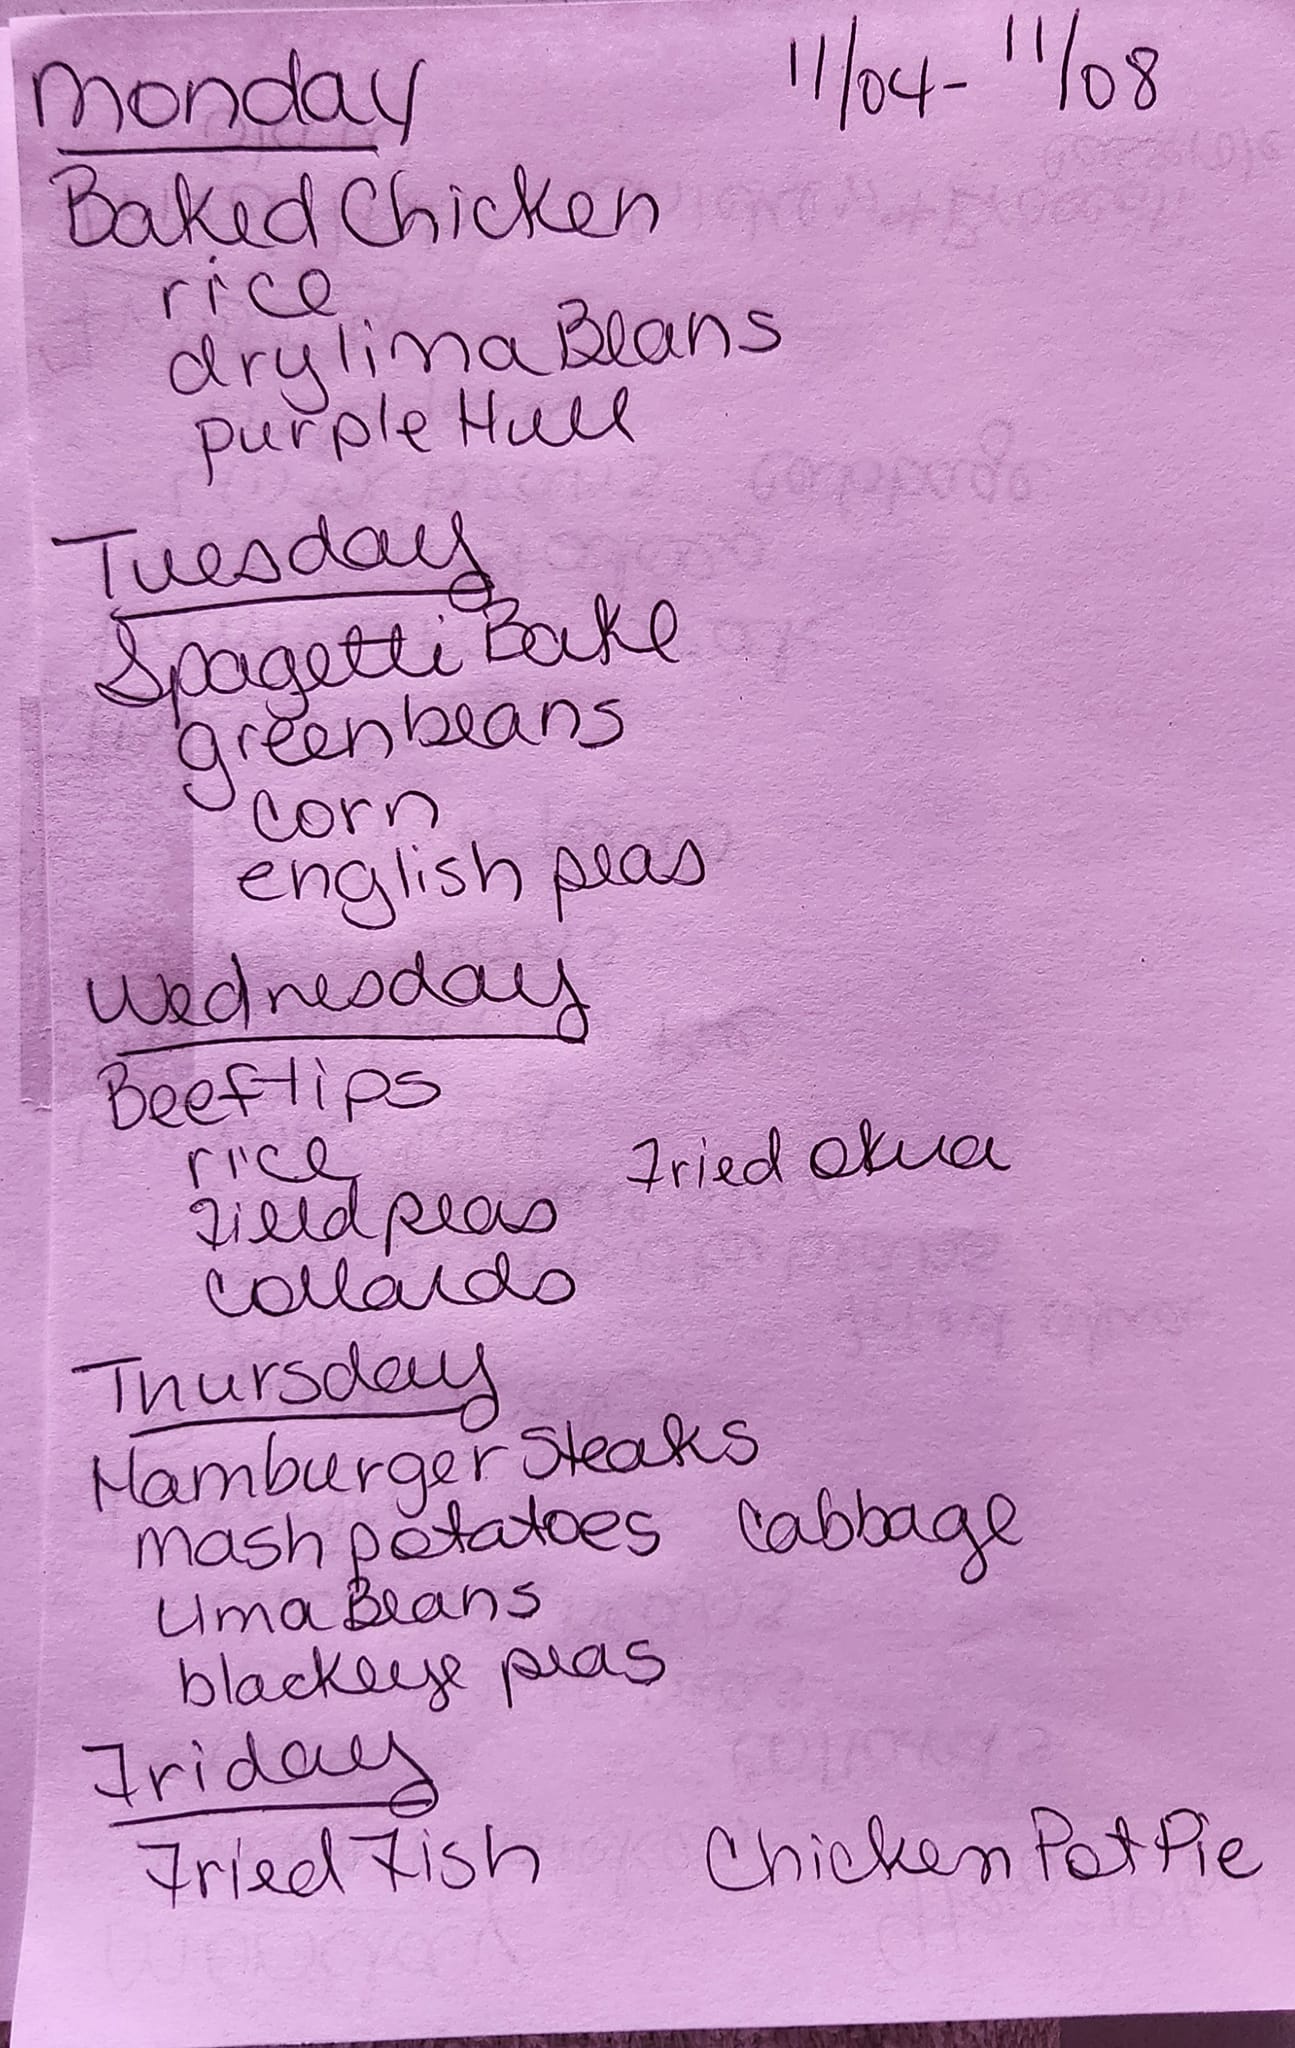 Monday 11/04- 11/08
Baked Chicken
rice
dry lima Beans
purple Hull
Tuesday
Spagetti Bake
greenbeans
corn
english peas
Wednesday
Beef tips
rice Fried okra
Field peas
Collards
Thursday
Hamburger Steaks
mash potatoes Cabbage
Lima Beans
blackeye peas
Friday
Fried Fish Chicken Pot Pie